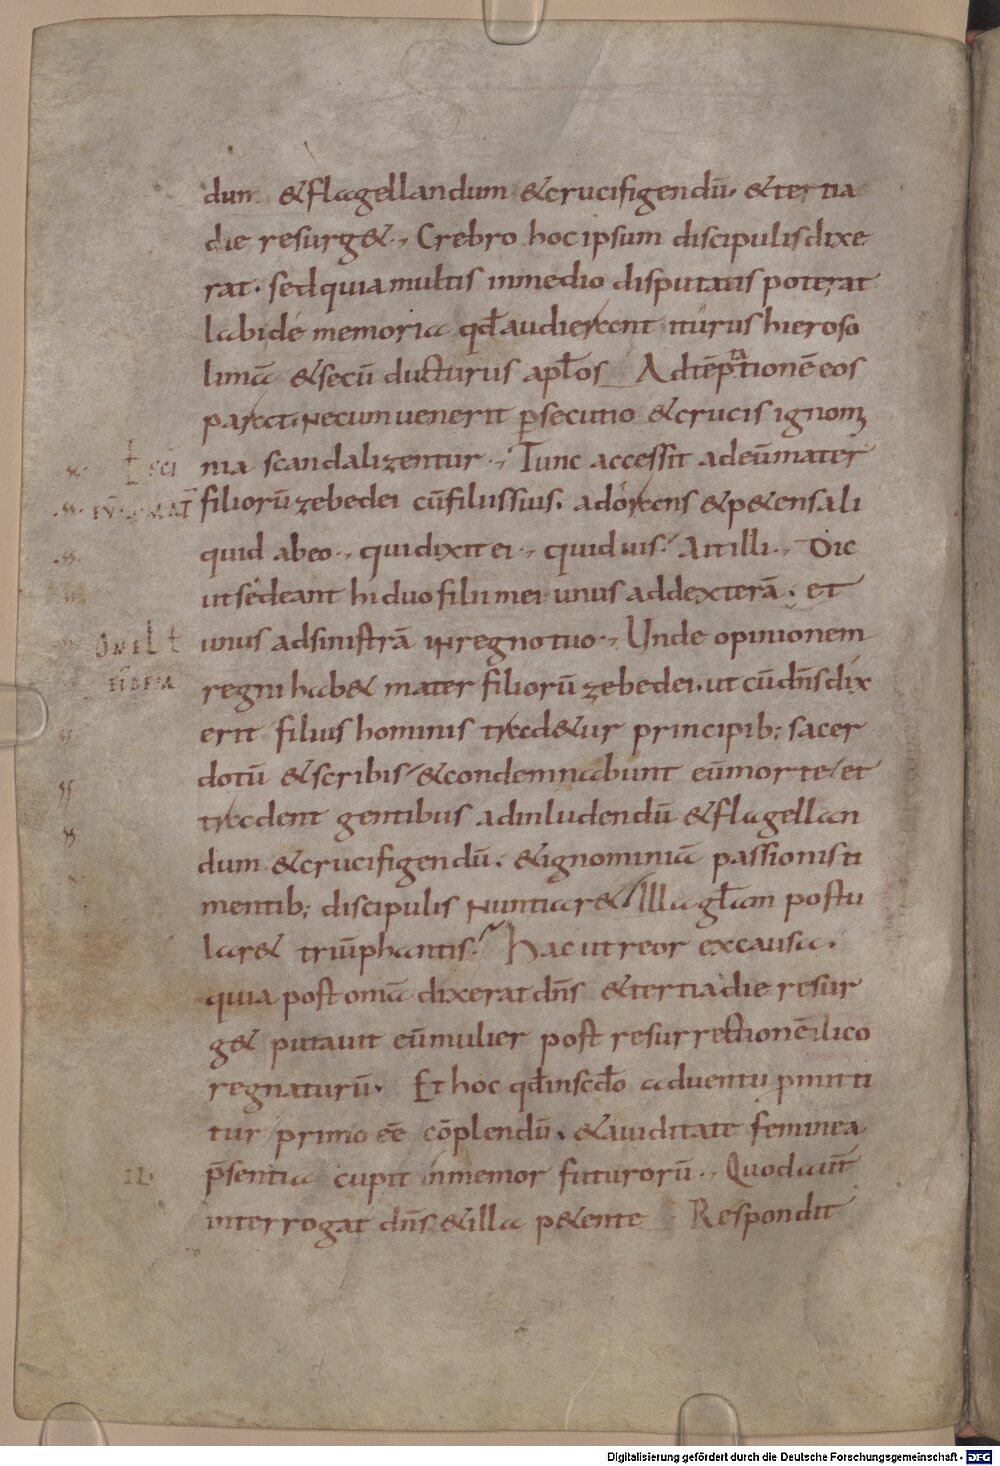 dum &flagellandum &crucifigendū· &tertia
die resurg&·, Crebro hoc ipsum discipulis dixe
rat· sed quia multis in medio disputatis poterat
labi de memoria qđ audierant iturus hieroso
limā &secū ducturus apłos Ad tēptationē eos
parat· Ne cum venerit ꝑsecutio &crucis ignomi
nia scandalizentur·, Tunc accessit ad eū mater
filiorū zebedei cū filiis suis· adorans &p&ens ali
quid ab eo·, qui dixit ei·, quid uis? Ait illi·, Dic
ut sedeant hi duo filii mei unus ad dexterā· et
unus ad sinistrā in regno tuo·, Unde opinionem
regni hab& mater filiorū zebedei· ut cū dn̄s dix
erit filius hominis trad&ur principib; sacer
dotū &scribis &condemnabunt eū morte et
tradent gentibus ad inludendū &flagellan
dum &crucifigendū· &ignominiā passionis ti
mentib; discipulis Nuntiar& Illa gł̄am postu
lar& triūphantis? Hac ut reor ex causa·
quia post omā dixerat dn̄s &tertia die resur
g& putauit eū mulier post resurrectionē ilico
regnaturū· Et hoc qđ in scđo aduentu ꝓmitti
tur primo eē cōplendū· &auiditate feminea
p̄sentia cupit inmemor futurorū·, Quod aūt
interrogat dn̄s &illa p&ente Respondit
Digitalisierung gefördert durch die Deutsche Forschungsgemeinschaft - DFG